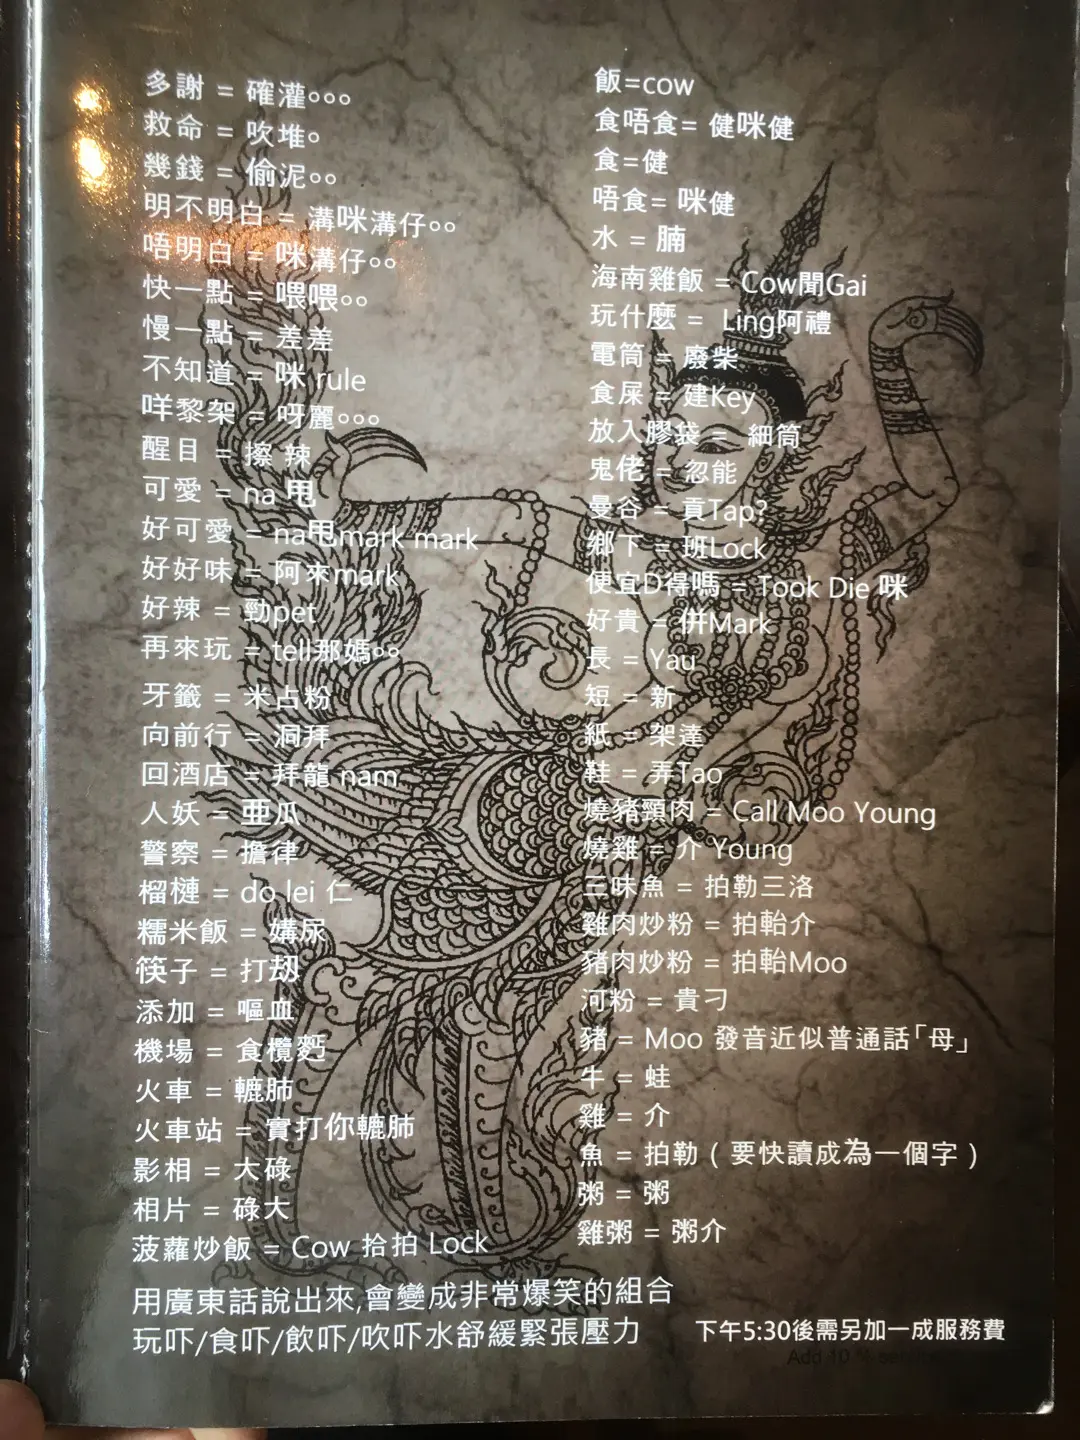 多謝 = 確灌∘∘∘
救命 = 吹堆∘
幾錢 = 偷泥∘∘
明不明白 = 溝咪溝仔∘∘
唔明白 = 咪溝仔∘∘
快一點 = 喂喂∘∘
慢一點 = 差差
不知道 = 咪 rule
咩黎架 = 呀麗∘∘∘
醒目 = 擦 辣
可愛 = na 甩
好可愛 = na甩mark mark
好好味 = 阿來mark
好辣 = 勁pet
再來玩 = tell那媽∘∘
牙籤 = 米占粉
向前行 = 洞拜
回酒店 = 拜龍 nam
人妖 = 亜瓜
警察 = 擔律
榴槤 = do lei 仁
糯米飯 = 媾尿
筷子 = 打刼
添加 = 嘔血
機場 = 食欖麫
火車 = 轆肺
火車站 = 實打你轆肺
影相 = 大碌
相片 = 碌大
菠蘿炒飯 = Cow 拾拍 Lock
飯=cow
食唔食= 健咪健
食=健
唔食= 咪健
水 = 腩
海南雞飯 = Cow聞Gai
玩什麼 = Ling阿禮
電筒 = 廢柴
食屎 = 建Key
放入膠袋 = 細筒
鬼佬 = 忽能
曼谷 = 貢Tap?
鄉下 = 班Lock
便宜D得嗎 = Took Die 咪
好貴 = 併Mark
長 = Yau
短 = 新
紙 = 架達
鞋 = 弄Tao
燒豬頸肉 = Call Moo Young
燒雞 = 介 Young
三味魚 = 拍勒三洛
雞肉炒粉 = 拍軩介
豬肉炒粉 = 拍軩Moo
河粉 = 貴刁
豬 = Moo 發音近似普通話「母」
牛 = 蛙
雞 = 介
魚 = 拍勒 ( 要快讀成為一個字 )
粥 = 粥
雞粥 = 粥介
用廣東話說出來,會變成非常爆笑的組合
玩吓/食吓/飲吓/吹吓水舒緩緊張壓力
下午5:30後需另加一成服務費
Add 10 %